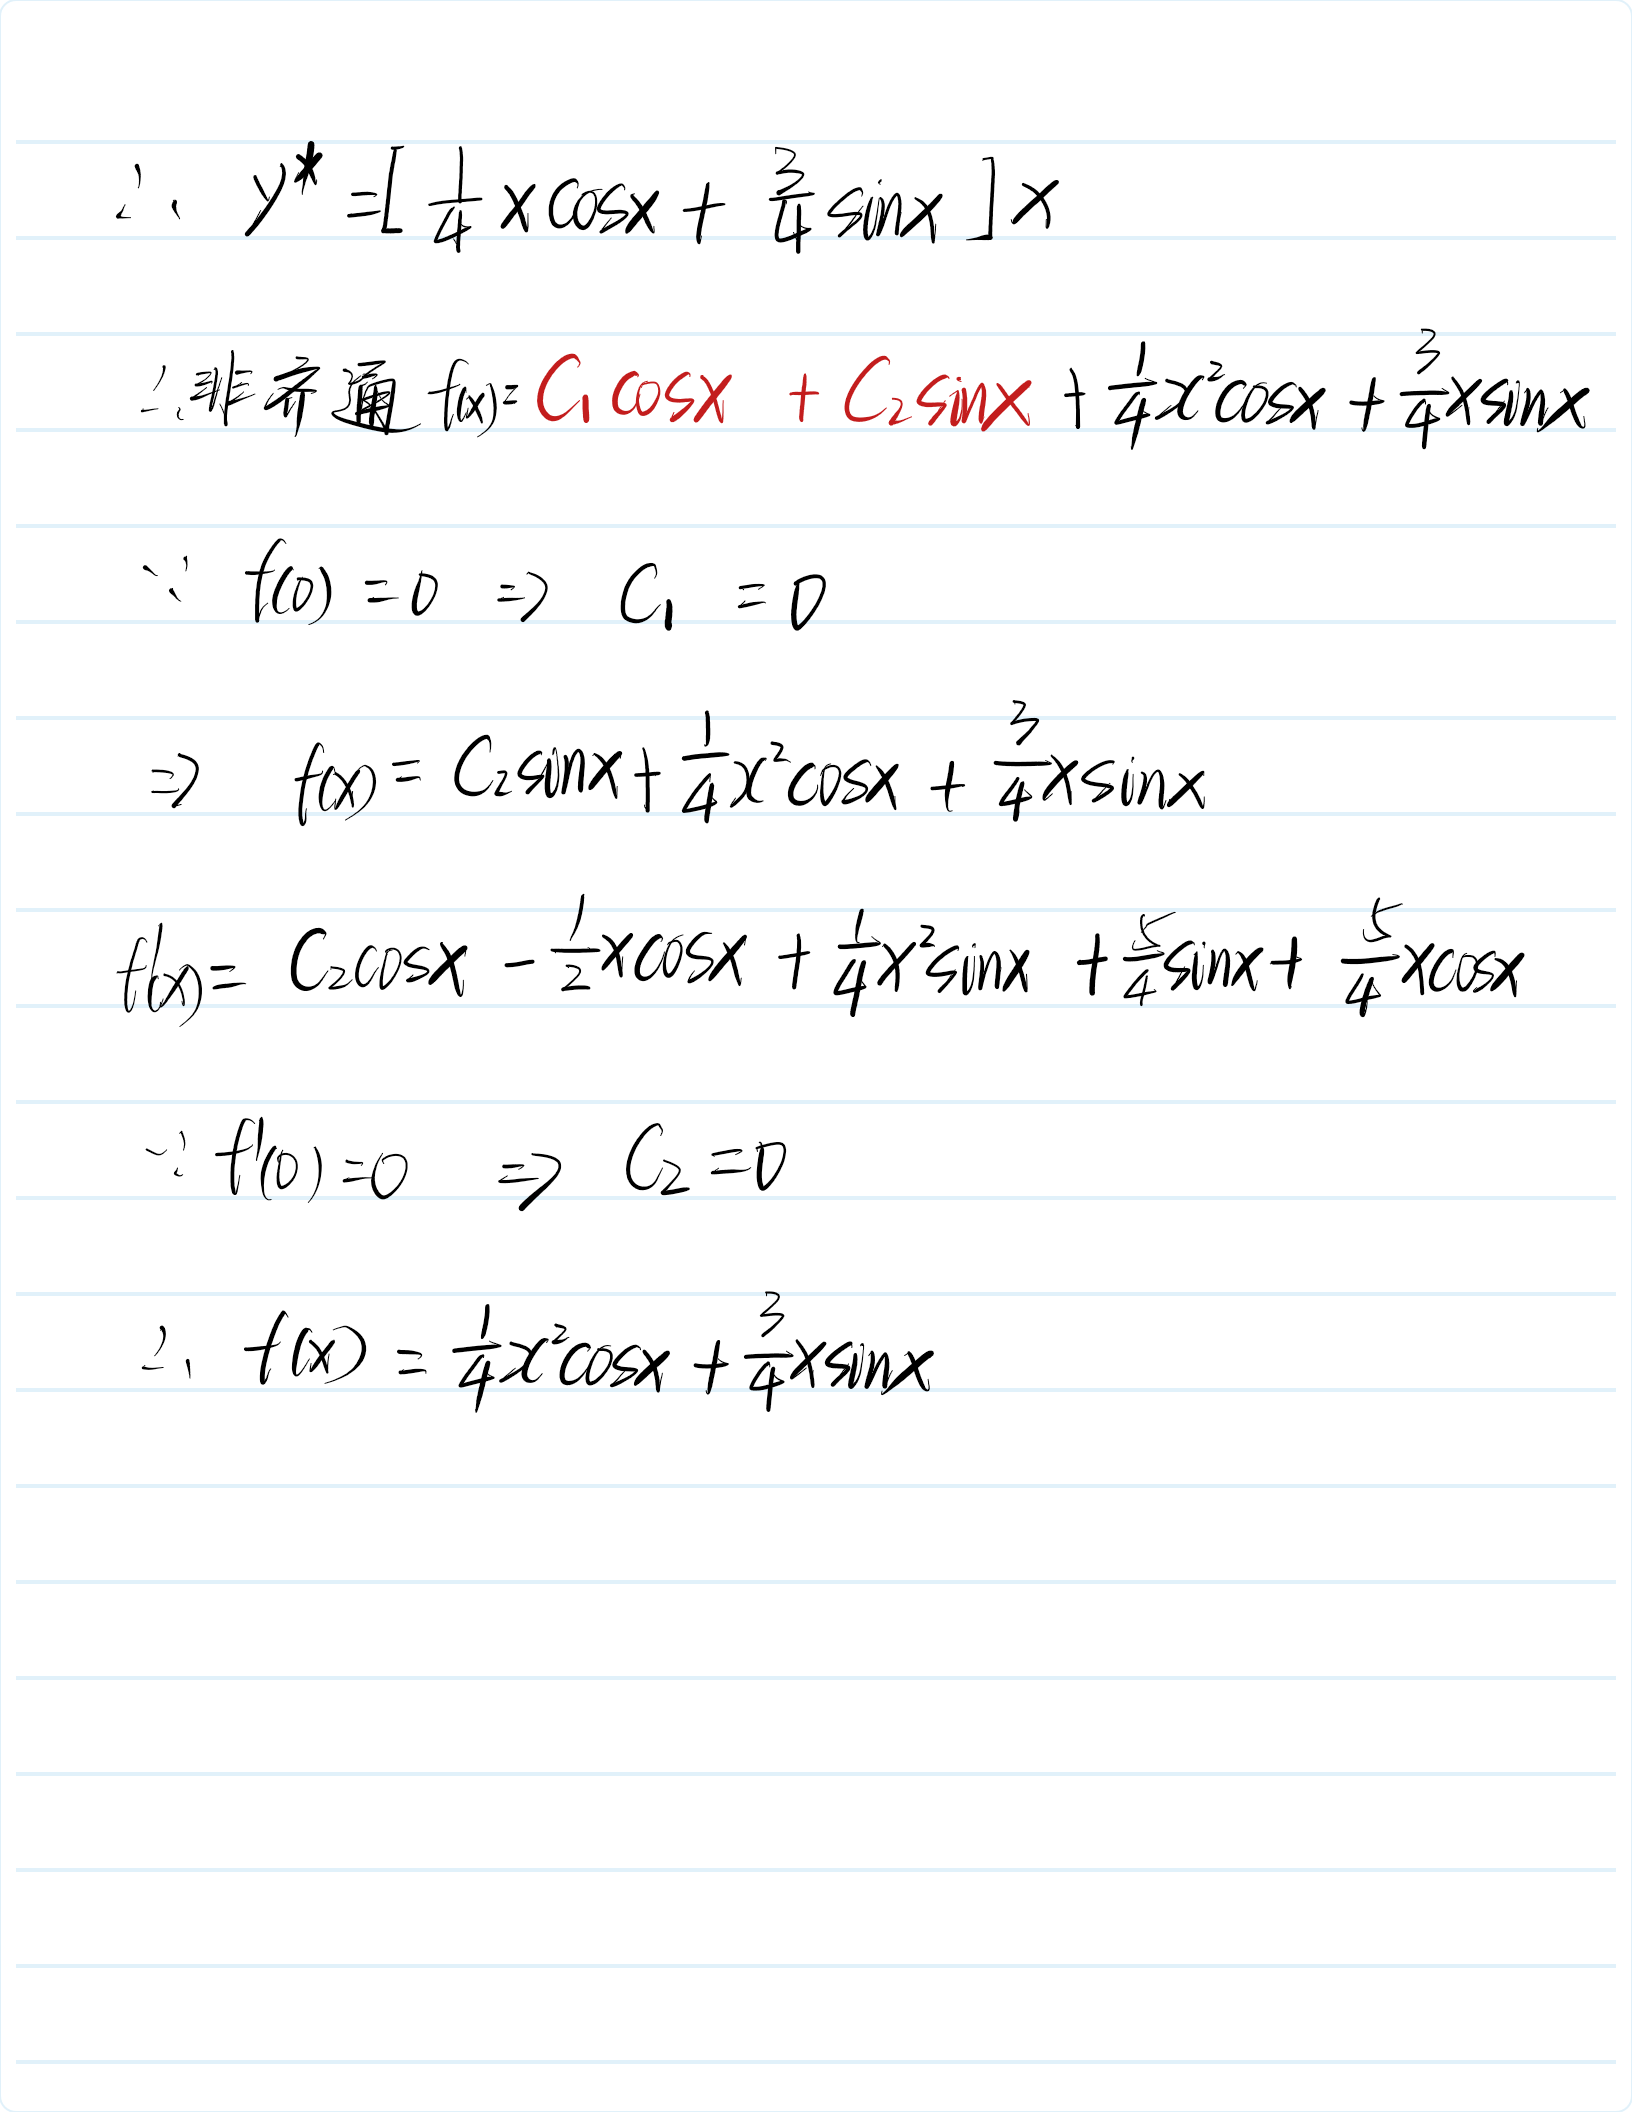 ∴ y* = [ 1/4 x cosx + 3/4 sinx ] x
∴ 非齐通 f(x) = C₁cosx + C₂sinx + 1/4 x²cosx + 3/4 x sinx
∵ f(0) = 0 ⇒ C₁ = 0
⇒ f(x) = C₂sinx + 1/4 x²cosx + 3/4 x sinx
f'(x) = C₂cosx - 1/2 x cosx + 1/4 x² sinx + 5/4 sinx + 5/4 x cosx
∵ f'(0) = 0 ⇒ C₂ = 0
∴ f(x) = 1/4 x²cosx + 3/4 x sinx